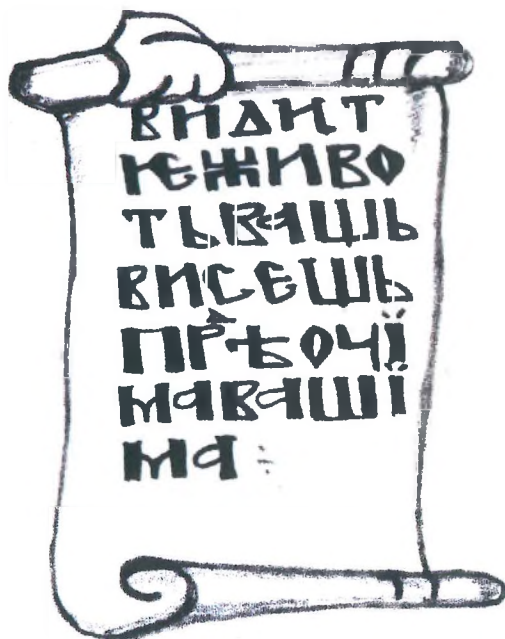 ВИДИТ
ѤЖИВО
ТЬВАШЬ
ВИСЄШЬ
ПРⷣѢОЧЇ
МАВАШЇ
МА :